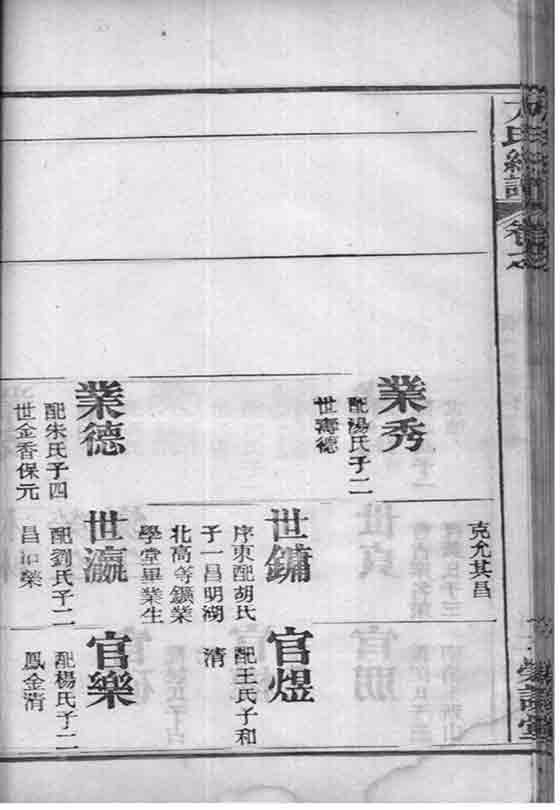 氏
卷之
克允其昌
業秀
配湯氏子二
世壽德
世鏞
序東配胡氏
子一昌明湖
北高等鑛業
學堂畢業生
官煜
配王氏子和
清
業德
配朱氏子四
世金香保元
世瀛
配劉氏子二
昌榮
官樂
配楊氏子二
鳳金清